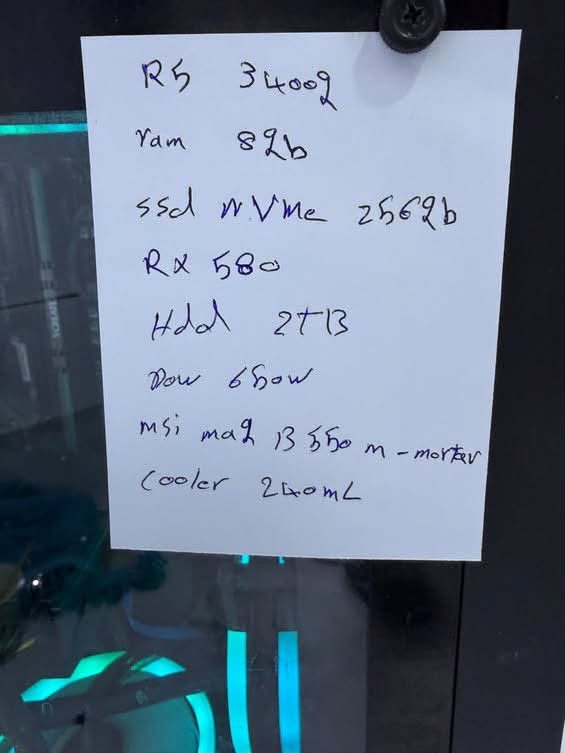 R5 3400g
ram 8gb
ssd NVMe 256gb
RX 580
Hdd 2TB
Pow 650w
msi mag B550 m-mortar
Cooler 240mL